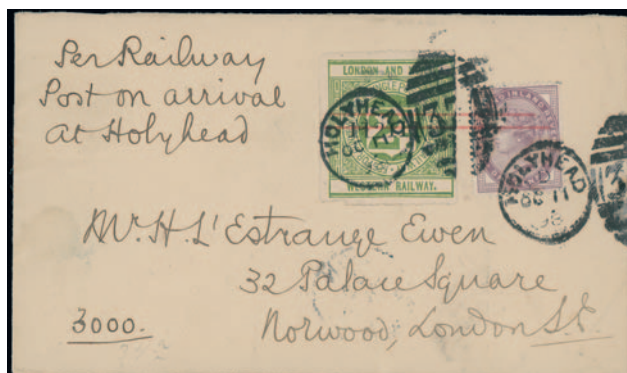 Per Railway
Post on arrival
at Holyhead
LONDON AND
HOLYHEAD
RAILWAY.
HOLYHEAD
Mr. H. L'Estrange Ewen
32 Palace Square
Norwood, London S.E.
3000.-